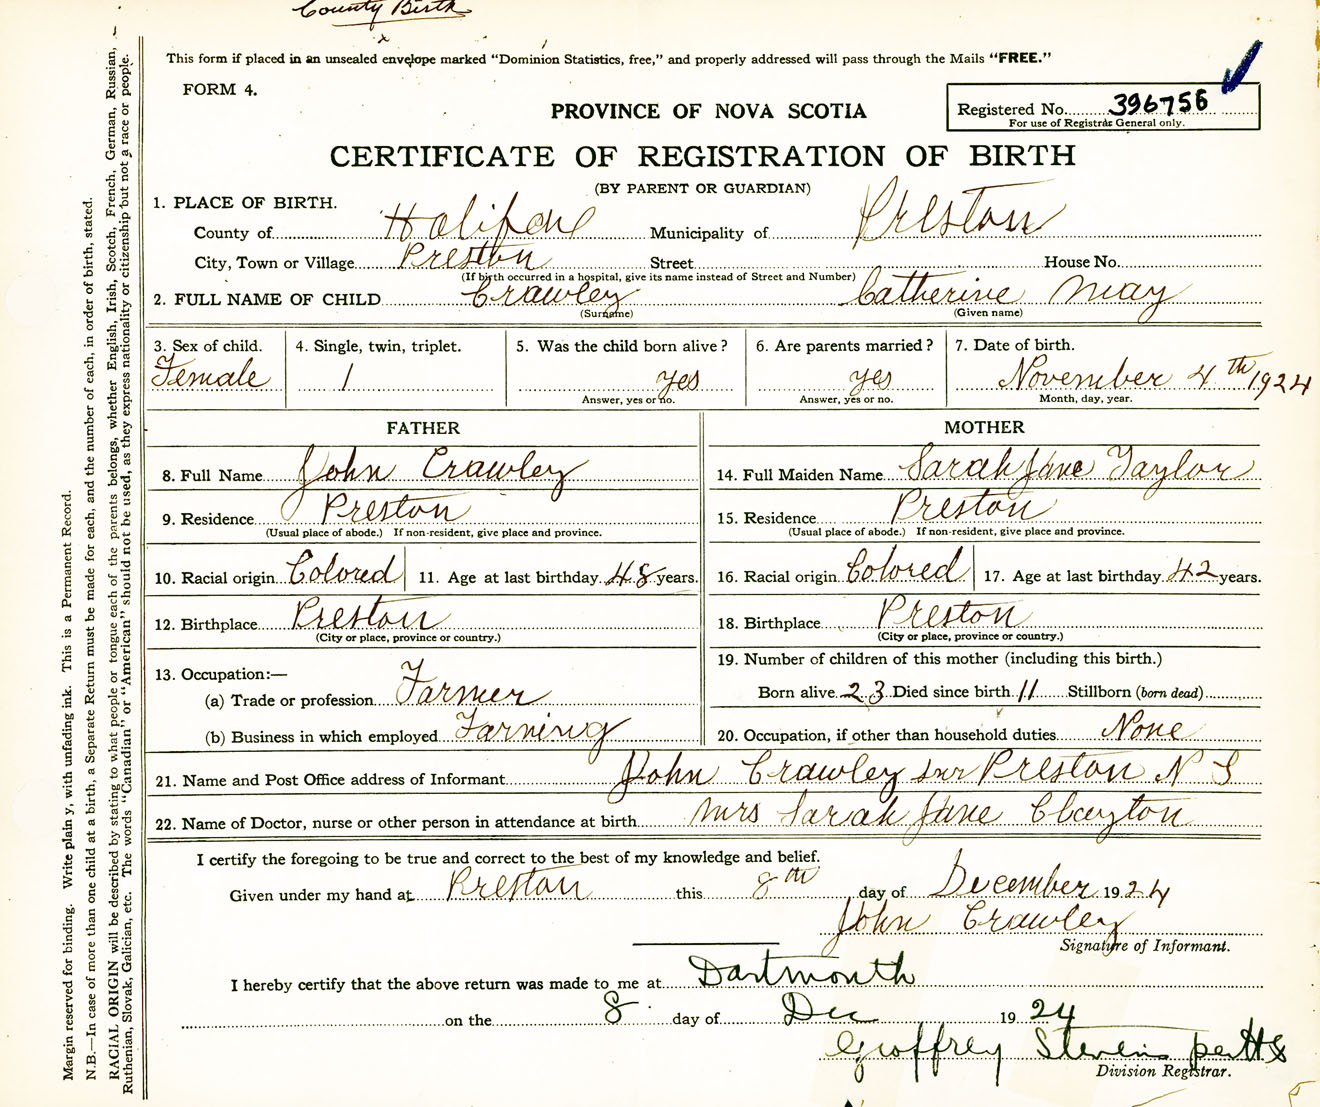 County Birth
This form if placed in an unsealed envelope marked “Dominion Statistics, free,” and properly addressed will pass through the Mails “FREE.”
FORM 4.
PROVINCE OF NOVA SCOTIA
Registered No. 396756
For use of Registrar General only.
CERTIFICATE OF REGISTRATION OF BIRTH
(BY PARENT OR GUARDIAN)
1. PLACE OF BIRTH.
County of Halifax Municipality of Preston
City, Town or Village Preston Street House No.
(If birth occurred in a hospital, give its name instead of Street and Number)
2. FULL NAME OF CHILD Crawley Catherine May
(Surname) (Given name)
3. Sex of child. 4. Single, twin, triplet. 5. Was the child born alive? 6. Are parents married? 7. Date of birth.
Female 1 yes yes November 4th 1924
Answer, yes or no. Answer, yes or no. Month, day, year.
FATHER MOTHER
8. Full Name John Crawley 14. Full Maiden Name Sarah Jane Taylor
9. Residence Preston 15. Residence Preston
(Usual place of abode.) If non-resident, give place and province. (Usual place of abode.) If non-resident, give place and province.
10. Racial origin Colored 11. Age at last birthday 48 years. 16. Racial origin Colored 17. Age at last birthday 42 years.
12. Birthplace Preston 18. Birthplace Preston
(City or place, province or country.) (City or place, province or country.)
13. Occupation:— 19. Number of children of this mother (including this birth.)
(a) Trade or profession Farmer Born alive 23 Died since birth 11 Stillborn (born dead)
(b) Business in which employed Farning 20. Occupation, if other than household duties None
21. Name and Post Office address of Informant John Crawley snr Preston N S
22. Name of Doctor, nurse or other person in attendance at birth Mrs Sarah Jane Clayton
I certify the foregoing to be true and correct to the best of my knowledge and belief.
Given under my hand at Preston this 8th day of December 1924
John Crawley
Signature of Informant.
I hereby certify that the above return was made to me at Dartmouth
on the 8 day of Dec 1924
Geoffrey Stevens per
Division Registrar.
Margin reserved for binding. Write plain y, with unfading ink. This is a Permanent Record.
N.B.—In case of more than one child at a birth, a Separate Return must be made for each, and the number of each, in order of birth, stated.
RACIAL ORIGIN will be described by stating to what people or tongue each of the parents belongs, whether English, Irish, Scotch, French, German, Russian,
Ruthenian, Slovak, Galician, etc. The words “Canadian” or “American” should not be used, as they express nationality or citizenship but not a race or people.